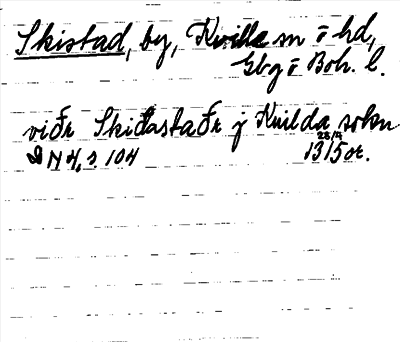 Skistad, by, Kville sn o hd,
Gbg o Boh. l.
viðr Skiðastaðr j Kuilda sokn
DN 4, s. 104 28/9 1315 or.